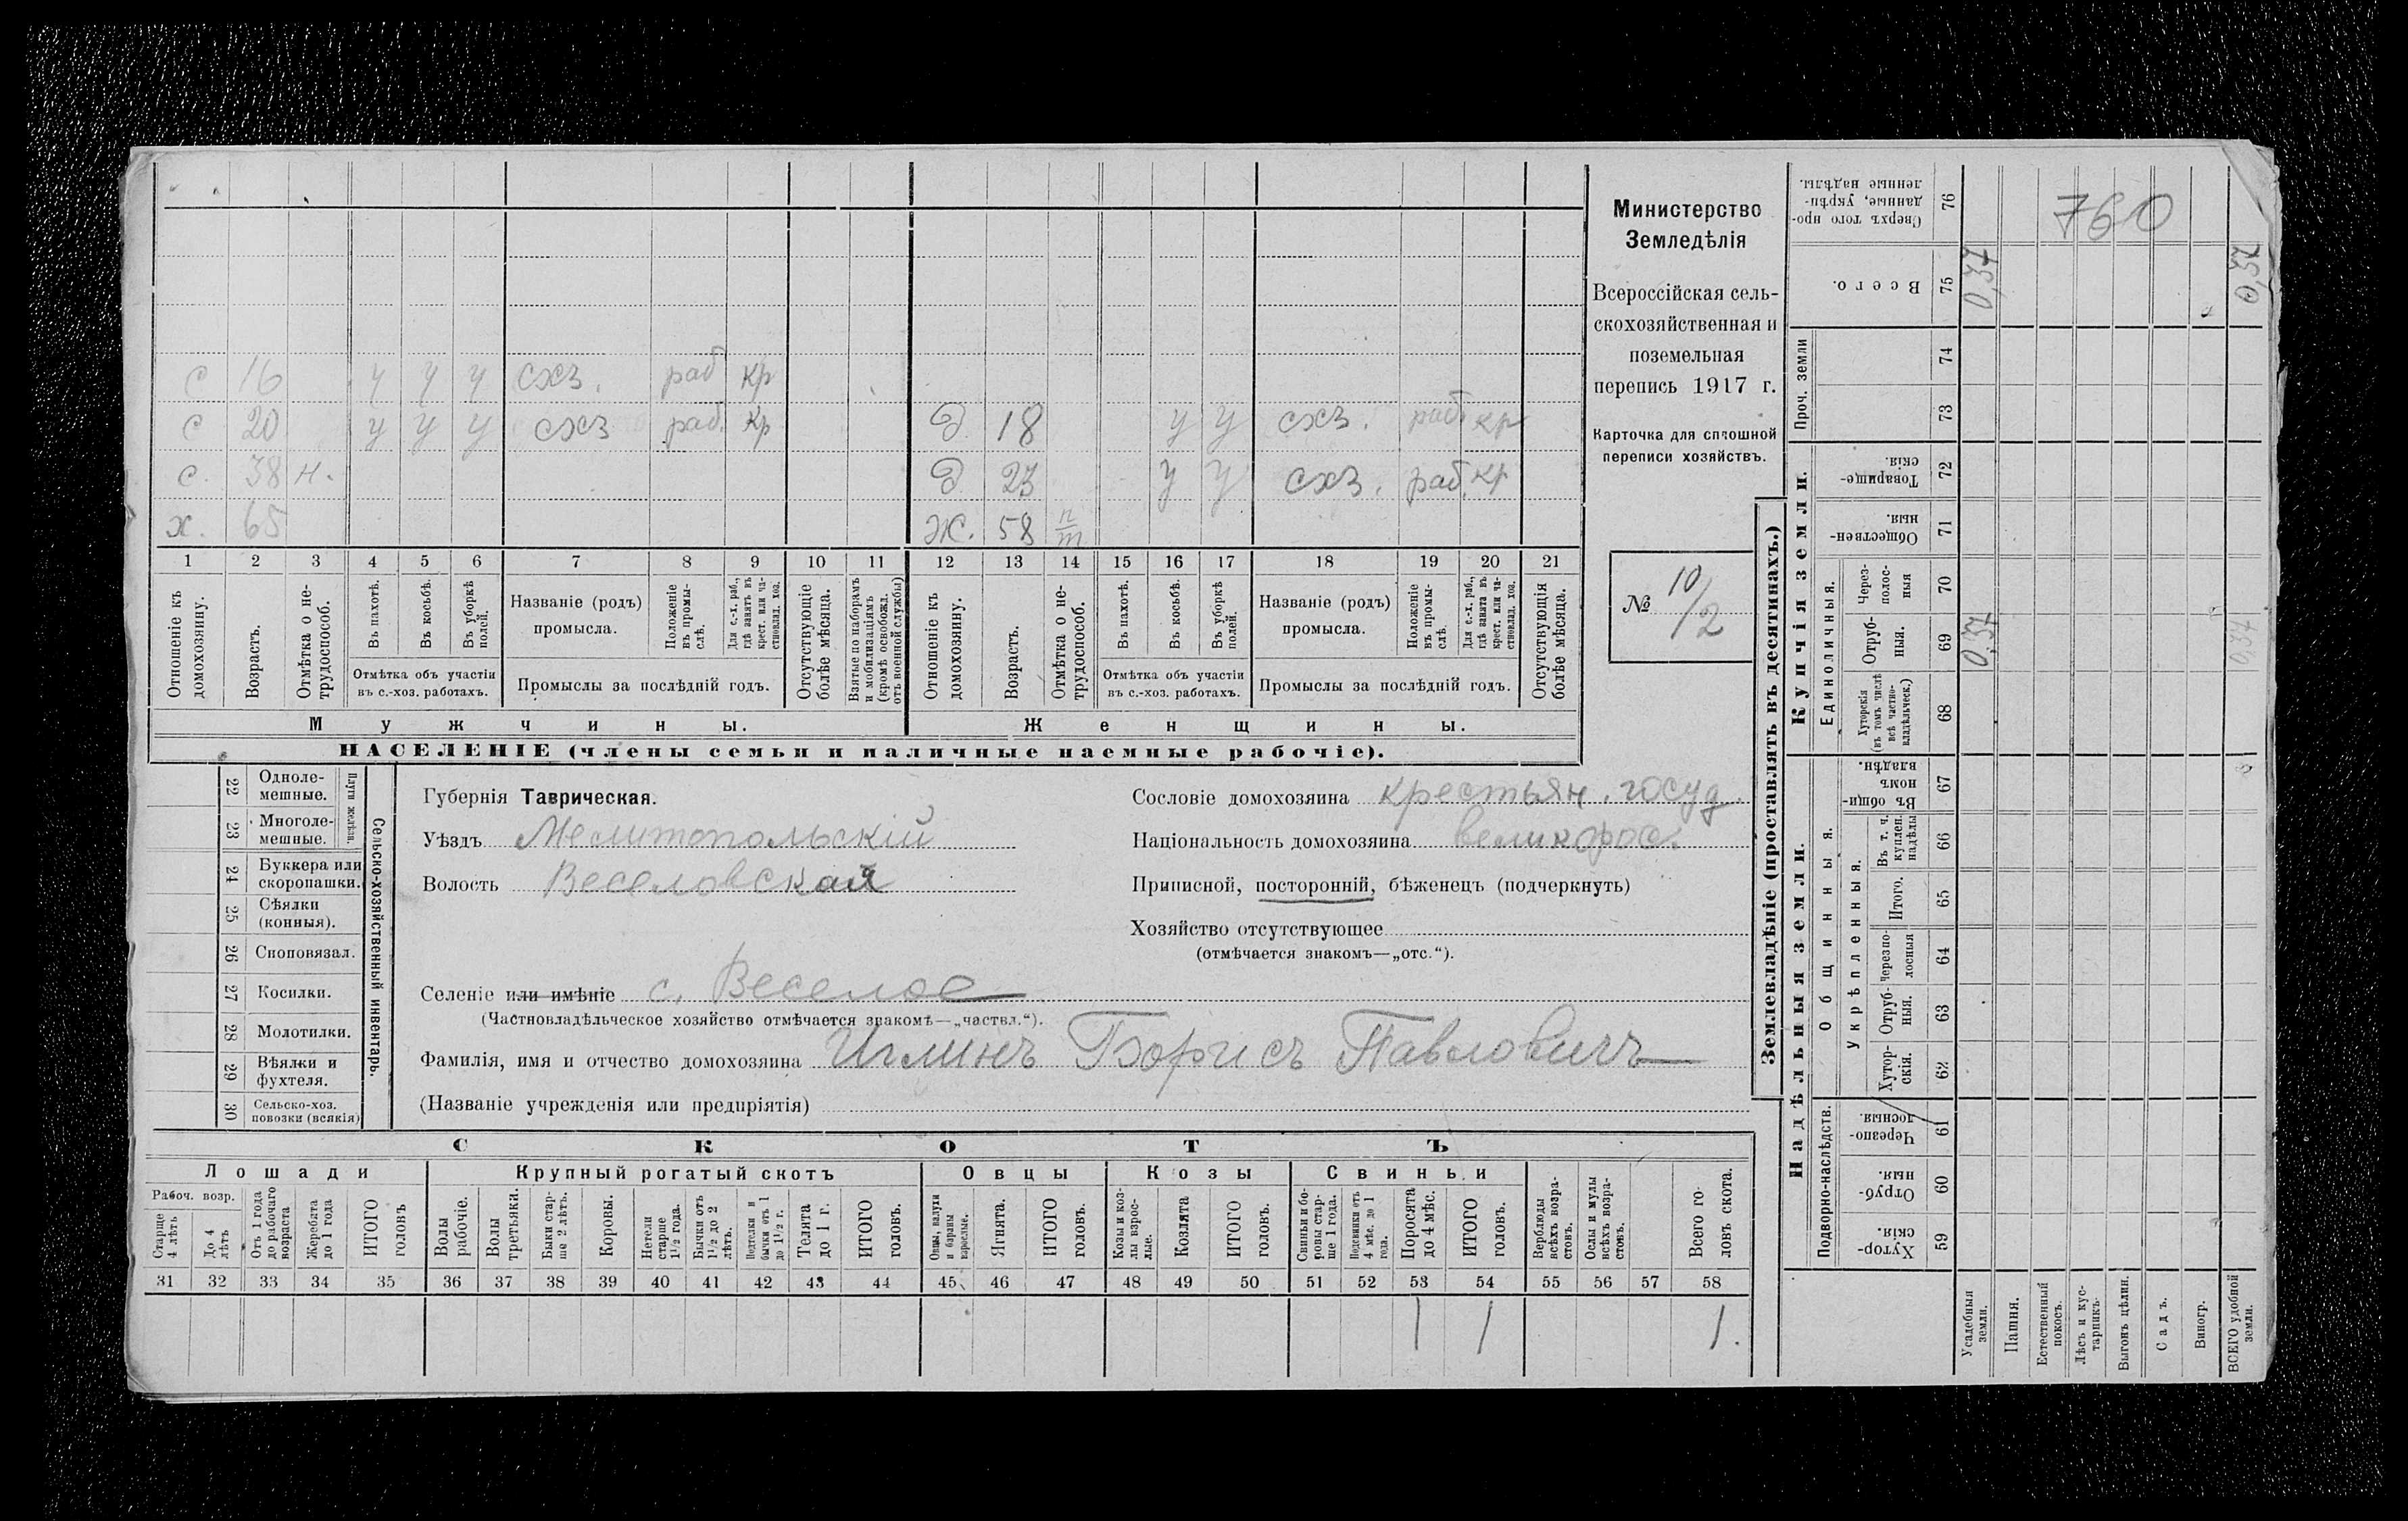 с 16 у у у схз. раб кр
с 20 у у у схз раб. кр д 18 у у схз. раб. кр
с. 38 н. д 23 у у схз. раб. кр
х. 65 ж. 58 п/т
1 2 3 4 5 6 7 8 9 10 11 12 13 14 15 16 17 18 19 20 21
Отношеніе къ домохозяину.
Возрастъ.
Отмѣтка о не-трудоспособ.
Въ пахотѣ.
Въ косьбѣ.
Въ уборкѣ полей.
Отмѣтка объ участіи
въ с.-хоз. работахъ.
Названіе (родъ)
промысла.
Положеніе въ промы-слѣ.
Для с.-х. раб., гдѣ занятъ въ крест. или ча-стновлад. хоз.
Промыслы за послѣдній годъ.
Отсутствующіе болѣе мѣсяца.
Взятые по наборамъ и мобилизаціямъ (кромѣ освобожд. отъ военной службы)
Отношеніе къ домохозяину.
Возрастъ.
Отмѣтка о не-трудоспособ.
Въ пахотѣ.
Въ косьбѣ.
Въ уборкѣ полей.
Отмѣтка объ участіи
въ с.-хоз. работахъ.
Названіе (родъ)
промысла.
Положеніе въ промы-слѣ.
Для с.-х. раб., гдѣ занята въ крест. или ча-стновлад. хоз.
Промыслы за послѣдній годъ.
Отсутствующія болѣе мѣсяца.
Мужчины. Женщины.
НАСЕЛЕНІЕ (члены семьи и наличные наемные рабочіе).
Министерство
Земледѣлія
Всероссійская сель-
скохозяйственная и
поземельная
перепись 1917 г.
Карточка для сплошной
переписи хозяйствъ.
№ 10/2
22 Одноле-мешные.
23 Многоле-мешные.
Плуги желѣзн.
24 Буккера или скоропашки.
25 Сѣялки (конныя).
26 Сноповязал.
27 Косилки.
28 Молотилки.
29 Вѣялки и фухтеля.
30 Сельско-хоз. повозки (всякія)
Сельско-хозяйственный инвентарь.
Губернія Таврическая.
Уѣздъ Мелитопольскій
Волость Веселовская
Селеніе или имѣніе с. Веселое
(Частновладѣльческое хозяйство отмѣчается знакомъ—„частвл.“).
Фамилія, имя и отчество домохозяина Иглинъ Борисъ Павловичъ
(Названіе учрежденія или предпріятія)
Сословіе домохозяина крестьян. госуд.
Національность домохозяина великорос.
Приписной, посторонній, бѣженецъ (подчеркнуть)
Хозяйство отсутствующее
(отмѣчается знакомъ—„отс.“).
СКОТЪ
Лошади Крупный рогатый скотъ Овцы Козы Свиньи
Рабоч. возр.
Старше 4 лѣтъ
До 4 лѣтъ
Отъ 1 года до рабочаго возраста
Жеребята до 1 года
ИТОГО головъ
Волы рабочіе.
Волы третьяки.
Быки стар-ше 2 лѣтъ.
Коровы.
Нетели старше 1½ года.
Бычки отъ 1½ до 2 лѣтъ.
Подтелки и бычки отъ 1 до 1½ г.
Телята до 1 г.
ИТОГО головъ.
Овцы, валухи и бараны взрослые.
Ягнята.
ИТОГО головъ.
Козы и коз-лы взрос-лые.
Козлята
ИТОГО головъ.
Свиньи и бо-ровы стар-ше 1 года.
Подсвинки отъ 4 мѣс. до 1 года.
Поросята до 4 мѣс.
ИТОГО головъ.
Верблюды всѣхъ возра-стовъ.
Ослы и мулы всѣхъ возра-стовъ.
Всего го-ловъ скота.
31 32 33 34 35 36 37 38 39 40 41 42 43 44 45 46 47 48 49 50 51 52 53 54 55 56 57 58
1 1 1.
Землевладѣніе (проставлять въ десятинахъ.)
760
Сверхъ того про-данные, укрѣп-ленные надѣлы. 76
Всего. 75 0,37 0,37
Проч. земли 74 73
Купчія земли.
Товарище-скія. 72
Обществен-ныя. 71
Единоличныя.
Через-полос-ныя 70
Отруб-ныя. 69 0,37 0,37
Хуторскія (въ томъ числѣ всѣ частно-владѣльческ.) 68
Надѣльныя земли.
Общинныя.
Въ общи-номъ владѣн. 67
Укрѣпленныя.
Въ т. ч. куплен. надѣлы 66
Итого. 65
Черезпо-лосныя 64
Отруб-ныя. 63
Хутор-скія. 62
Подворно-наслѣдств.
Черезпо-лосныя. 61
Отруб-ныя. 60
Хутор-скія. 59
Усадебныя земли.
Пашня.
Естественный покосъ.
Лѣсъ и кус-тарникъ.
Выгонъ цѣлин.
Садъ.
Виногр.
ВСЕГО удобной земли.